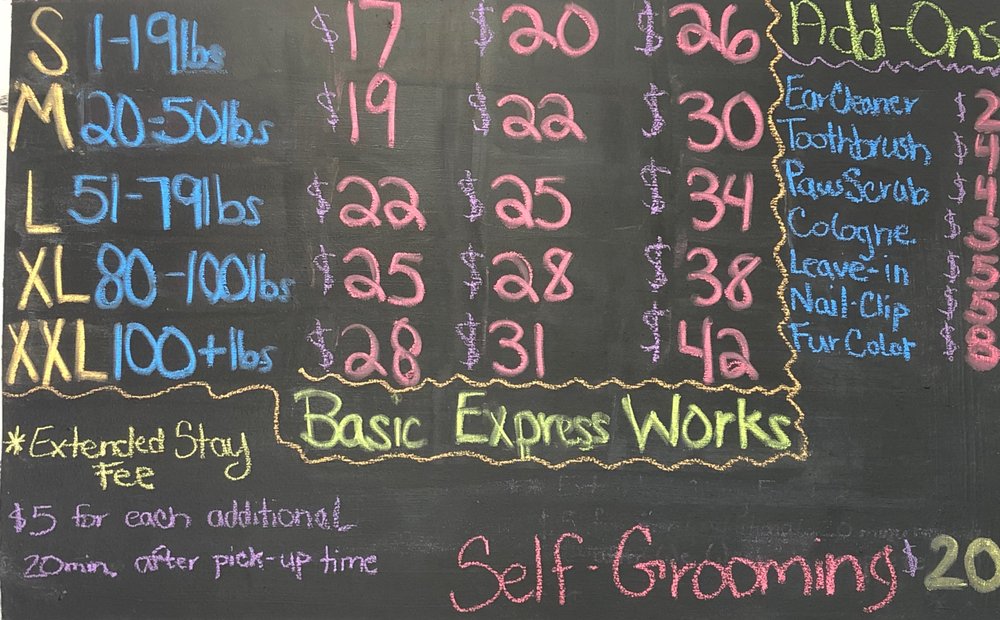 S 1-19lbs $17 $20 $26
M 20-50lbs $19 $22 $30
L 51-79lbs $22 $25 $34
XL 80-100lbs $25 $28 $38
XXL 100+lbs $28 $31 $42
Basic Express Works
Add-Ons
Ear Cleaner $2
Toothbrush $4
Paw Scrub $4
Cologne $5
Leave-in $5
Nail-Clip $5
Fur Color $8
*Extended Stay
Fee
$5 for each additional
20min. after pick-up time
Self-Grooming $20